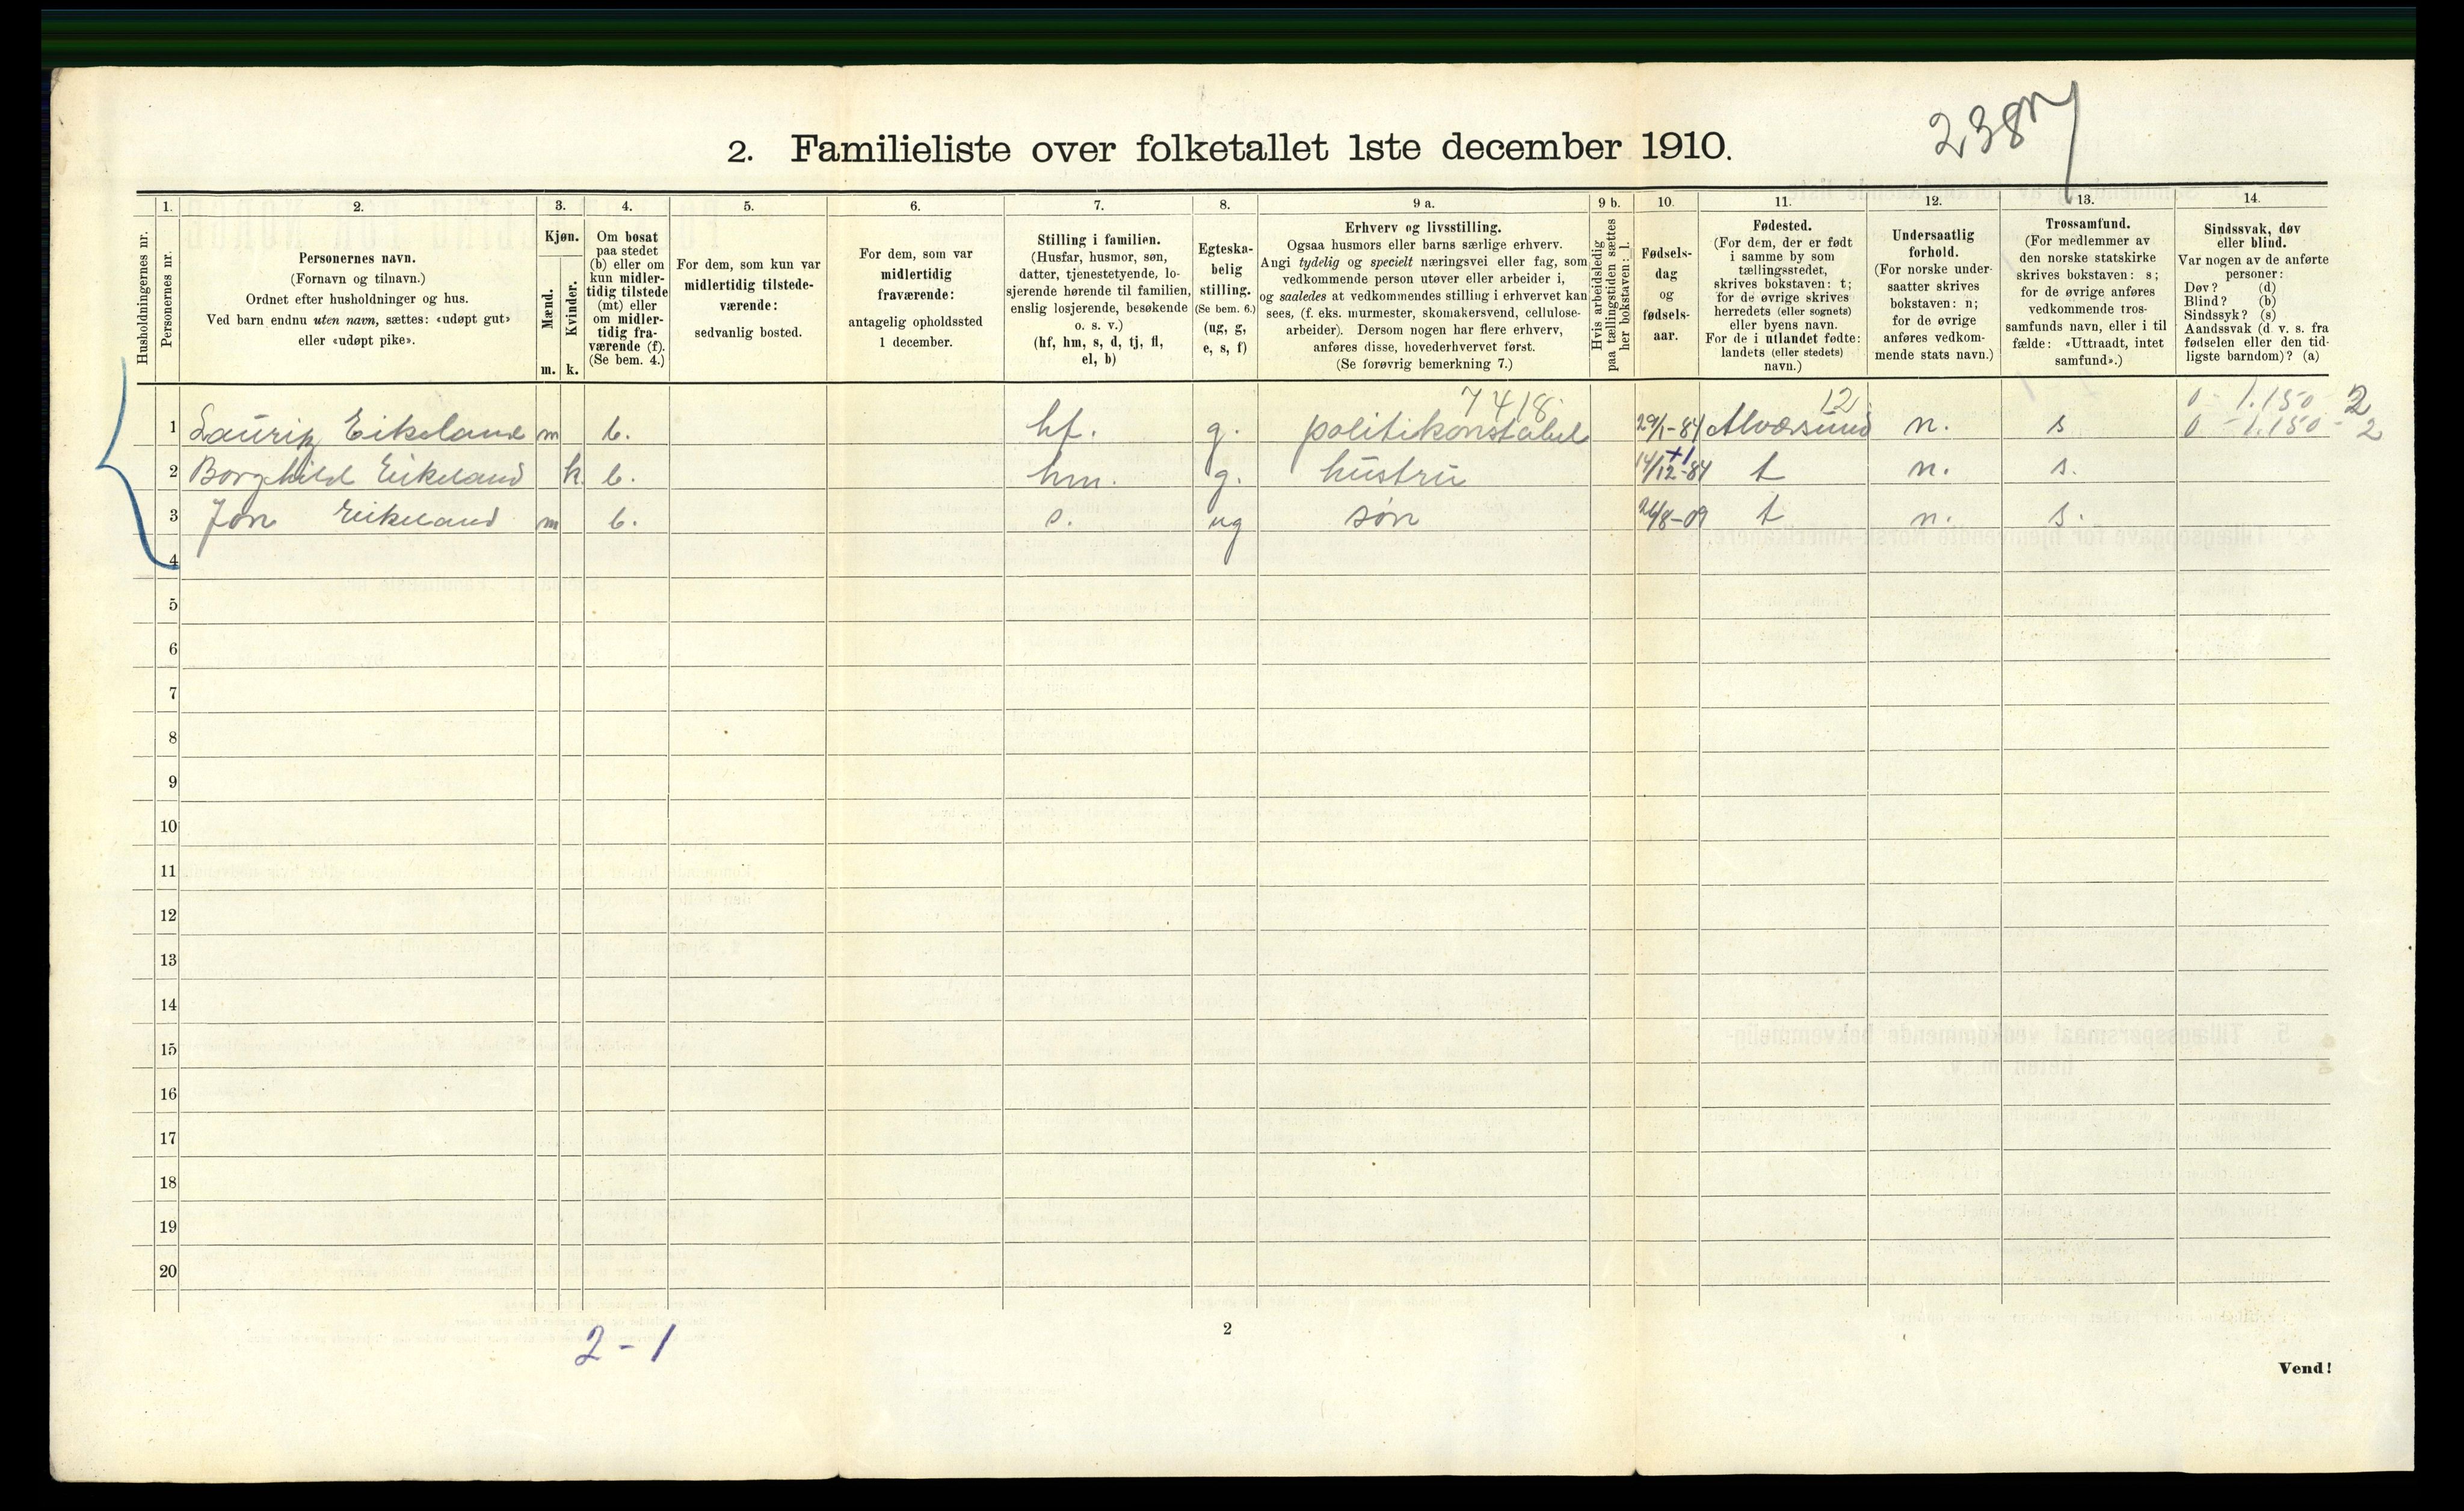 2. Familieliste over folketallet 1ste december 1910.
2387
Husholdningernes nr.
1.
Personernes nr.
2.
Personernes navn.
(Fornavn og tilnavn.)
Ordnet efter husholdninger og hus.
Ved barn endnu uten navn, sættes: «udøpt gut»
eller «udøpt pike».
3.
Kjøn.
Mænd.
m.
Kvinder.
k.
4.
Om bosat
paa stedet
(b) eller om
kun midler-
tidig tilstede
(mt) eller
om midler-
tidig fra-
værende (f).
(Se bem. 4.)
5.
For dem, som kun var
midlertidig tilstede-
værende:
sedvanlig bosted.
6.
For dem, som var
midlertidig
fraværende:
antagelig opholdssted
1 december.
7.
Stilling i familien.
(Husfar, husmor, søn,
datter, tjenestetyende, lo-
sjerende hørende til familien,
enslig losjerende, besøkende
o. s. v.)
(hf, hm, s, d, tj, fl,
el, b)
8.
Egteska-
belig
stilling.
(Se bem. 6.)
(ug, g,
e, s, f)
9 a.
Erhverv og livsstilling.
Ogsaa husmors eller barns særlige erhverv.
Angi tydelig og specielt næringsvei eller fag, som
vedkommende person utøver eller arbeider i,
og saaledes at vedkommendes stilling i erhvervet kan
sees, (f. eks. murmester, skomakersvend, cellulose-
arbeider). Dersom nogen har flere erhverv,
anføres disse, hovederhvervet først.
(Se forøvrig bemerkning 7.)
9 b.
Hvis arbeidsledig
paa tællingstiden sættes
her bokstaven: l.
10.
Fødsels-
dag
og
fødsels-
aar.
11.
Fødested.
(For dem, der er født
i samme by som
tællingsstedet,
skrives bokstaven: t;
for de øvrige skrives
herredets (eller sognets)
eller byens navn.
For de i utlandet fødte:
landets (eller stedets)
navn.)
12.
Undersaatlig
forhold.
(For norske under-
saatter skrives
bokstaven: n;
for de øvrige
anføres vedkom-
mende stats navn.)
13.
Trossamfund.
(For medlemmer av
den norske statskirke
skrives bokstaven: s;
for de øvrige anføres
vedkommende tros-
samfunds navn, eller i til
fælde: «Uttraadt, intet
samfund».)
14.
Sindssvak, døv
eller blind.
Var nogen av de anførte
personer:
Døv? (d)
Blind? (b)
Sindssyk? (s)
Aandssvak (d. v. s. fra
fødselen eller den tid-
ligste barndom)? (a)
7418 12 0 - 1.150 - 2
1 Lauritz Eikeland m b. hf. g. politikonstabel 29/1-84 Alversund n. s 0 - 1.150 - 2
2 Borghild Eikeland k. b. hm. g. hustru 14/12-84 t n. s.
3 Jon Eikeland m b. s. ug søn 26/8-09 t n. s.
4
5
6
7
8
9
10
11
12
13
14
15
16
17
18
19
20
2-1
2
Vend!